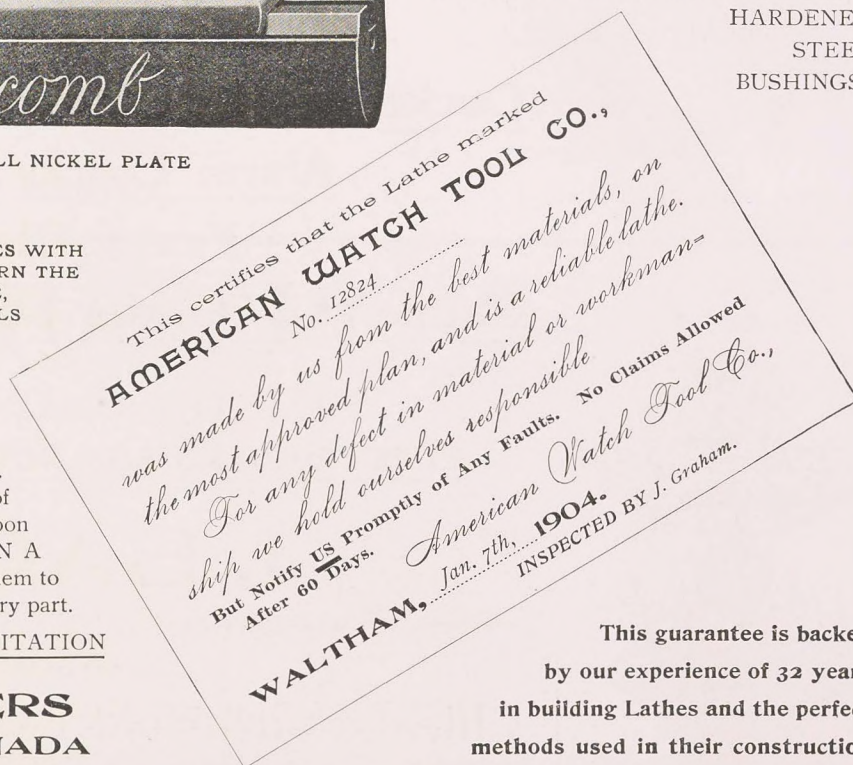 comb
NICKEL PLATE
WITH
THE
of
N A
to
part.
This certifies that the Lathe marked
AMERICAN WATCH TOOL CO.,
No. 12824
was made by us from the best materials, on
the most approved plan, and is a reliable lathe.
For any defect in material or workman=
ship we hold ourselves responsible
But Notify US Promptly of Any Faults. No Claims Allowed
After 60 Days.
American Watch Tool Co.,
WALTHAM, Jan. 7th, 1904.
INSPECTED BY J. Graham.
HARDENE
STEE
BUSHINGS
This guarantee is backe
by our experience of 32 year
in building Lathes and the perfec
methods used in their constructio